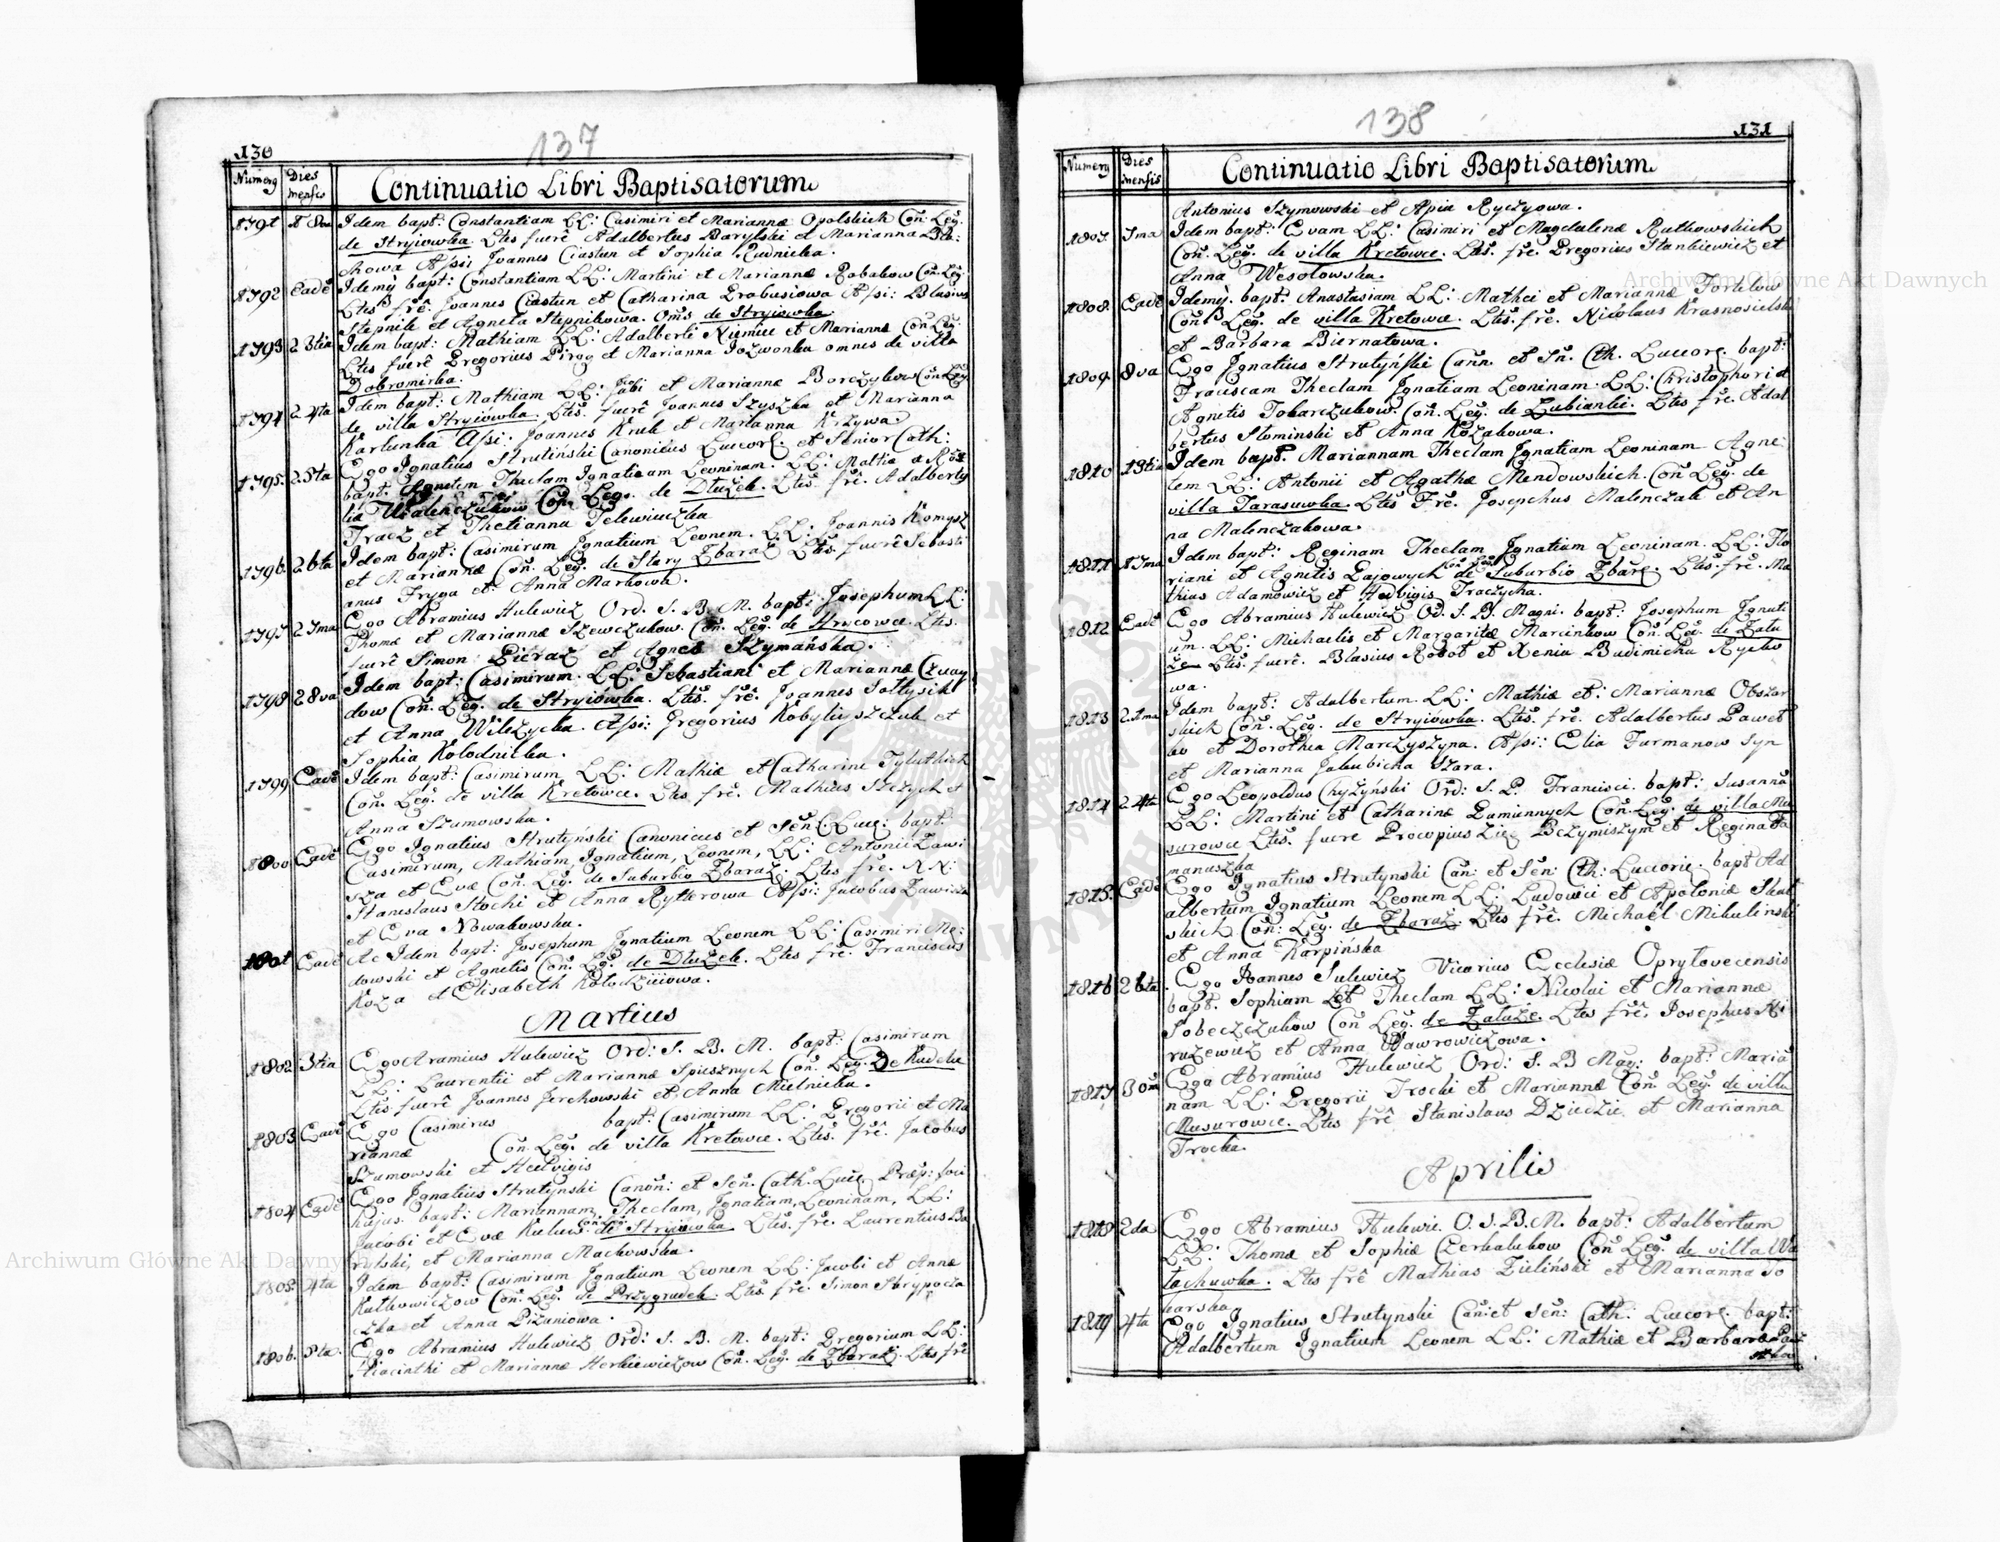 137
130
Numerꝯ
Dies mensis
Continuatio Libri Baptisatorum
1791 18va Idem bapt: Constantiam LL: Casimiri et Mariannæ Opolskich Con: Leg:
de Stryiowka Ltes fuerê Adalbertus Barylski et Marianna
chowa Assi Joannes Ciasten et Sophia Rudnicka.
1792 Eadê Idemý bapt: Constantiam LL: Martini et Mariannæ Rababow Con: Leg:
Ltes frê. Joannes Ciasten et Catharina Grabusiowa Assi: Blasius
Stepnik et Agneta Stepnikowa. Oms de Stryiowka
1793 23tia Idem bapt: Mathiam LL: Adalberti Niemiec et Mariannæ Con: Leg:
Ltes fuerê Gregorius Pirog et Marianna Jozwonka omnes de villa
Dobromirka.
1794 24ta Idem bapt: Mathiam LL: Jacobi et Mariannæ Borczykow Con: Leg:
de villa Stryiówka. Ltes. fuerê Joannes Szyszka et Marianna
Karlunka Assi: Joannes Kruk et Marianna Krzywa
1795. 25ta Ego Ignatius Strutinski Canonicus Luceor: et Senior Cath:
bapt. Agnetem Theclam Ignatiam Leoninam. LL: Mathiæ et
Con: Leg: de Dłużek. Ltes. frê. Adalbertꝯ
Tracz et Thetianna Telewiuczka
1796. 26ta Idem bapt: Casimirum Ignatium Leonem. LL: Joannis Komysz
et Mariannæ Con: Leg: de Stary Zbaraż Ltes. fuerê Sebasti
anus Fryga et Anna Markowa.
1797 27ma Ego Abramius Hulewicz Ord. S. B. M. bapt: Josephum LL:
Thomæ et Mariannæ Szewczukow. Con: Leg: de Hrycowce. Ltes.
fuerê Simon Pieraz et Agnes Szymańska.
1798 28va Idem bapt: Casimirum. LL: Sebastiani et Mariannæ Czuay
dow Con: Leg: de Stryiówka. Ltes. frê. Joannes Soltysik
et Anna Wilczycka. Assi: Gregorius Kobyliyszczuk et
Sophia Kolodnicka.
1799 Eadê Idem bapt: Casimirum LL: Mathiæ et Catharinæ Tyluthich
Con: Leg: de villa Kretowce. Ltes frê. Mathius Szczych et
Anna Szumowska.
1800 Eadê Ego Ignatius Strutyński Canonicus et Sen: C: Luce: bapt:
Casimirum, Mathiam, Ignatium, Leonem, LL: Antonii Zawi
sza et Evæ Con: Leg: de Suburbio Zbaraż. Ltes frê. NN:
Stanislaus Stochi et Anna Rytlerowa Assi: Jacobus Zawisza
et Eva Nowakowska.
1801 Eadê Ac Idem bapt: Josephum Ignatium Leonem LL: Casimiri Me:
dowski et Agnetis Con: Leg: de Dłużek. Ltes frê: Franciscus
Koza et Elisabeth Kołodziiowa.
Martius
1802 3tia Ego Aramius Hulewicz Ord: S. B. M. bapt: Casimirum
LL: Laurentii et Mariannæ Spiesznych Con: Leg: De Kudelu
Ltes fuerê Joannes Jerchowski et Anna Mielnicka.
1803 Eadê Ego Casimirus bapt: Casimirum LL: Gregorii et Ma
riannæ Con: Leg: de villa Kretowce. Ltes. frê. Jacobus
Szumowski et Hedvigis
1804 Eadê Ego Ignatius Strutynski Canon: et Sen: Cath: Luce: Præp: loci
hujus. bapt: Mariannam, Theclam, Ignatiam, Leoninam, LL:
Jacobi et Evæ Kulow Con: Leg: de Stryiowka Ltes. frê. Laurentius Ba
rylski, et Marianna Machowska.
1805. 4ta Idem bapt: Casimirum Ignatium Leonem LL: Jacobi et Annæ
Kutkowiczow Con: Leg: de Przygrudek. Ltes frê. Simon Skrypocza
czka et Anna Piżaniowa.
1806. 5ta. Ego Abramius Hulewicz Ord: S. B. M. bapt: Gregorium LL:
Hiacinthi et Mariannæ Herkiewiczow Con: Leg: de Zbaraż. Ltes frê
138
131
Numerꝯ
Dies mensis
Continuatio Libri Baptisatorum
Antonius Szymowski et Apia Ryczyowa.
1807. 7ma Idem bapt: Evam LL: Casimiri et Magdalenæ Rutkowskich
Con: Leg: de villa Kretowce. Ltes. frê. Gregorius Stankiewicz et
Anna Wesołowska.
1808. Eadê Idemý. bapt: Anastasiam LL: Mathei et Mariannæ Fortelow
Con: Leg: de villa Kretowce. Ltes. frê. Nicolaus Krasnosielski
et Barbara Biernatowa.
1809. 8va Ego Ignatius Strutyński Cann. et Sn. Cth. Luceor. bapt:
Franciscam Theclam Ignatiam Leoninam LL: Christophori et
Agnetis Tokarczukow. Con: Leg: de Lubianki. Ltes frê. Adal
bertus Słominski et Anna Kozakowa.
1810 13tia Idem bapt. Mariannam Theclam Ignatiam Leoninam Agne:
tem LL: Antonii et Agathæ Mendowskich. Con: Leg: de
villa Tarasuwka. Ltes Frê. Josephus Malenczak et An
na Malenczakowa.
1811 17ma Idem bapt: Reginam Theclam Ignatiam Leoninam. LL: Flo
riani et Agnetis Gajowych Con: Leg: de Suburbio Zbarż. Ltes. frê. Ma
thias Adamowicz et Hedvigis Traczycha.
1812 Eadê Ego Abramius Hulewicz Od. S. B. Magni. bapt: Josephum Ignati
um. LL: Michaelis et Margaritæ Marcinkow Con: Leg: de Zału
że Ltes. fuerê. Blasius Robot et Xenia Budimicha Rycho
wa.
1813 21ma Idem bapt: Adalbertum LL: Mathiæ et: Mariannæ Obszar
skich Con: Leg: de Stryiówka. Ltes. frê. Adalbertus Paweł
ko et Dorothea Marczyszyna. Assi: Elia Furmanow Syn
et Marianna Jakubicha Szara.
1814 24ta Ego Leopoldus Chyżyński Ord: S. P. Francisci. bapt: Susannã
LL: Martini et Catharinæ Dumunnych Con: Leg: de villa Mu
surowce Ltes. fuere Procopius Zieć Pczymiszym et Regina Ta
manuszka
1815. Eadê Ego Ignatius Strutynski Can: et Sen: Cth: Lucorie. bapt Ad
albertum Ignatium Leonem LL: Ludovici et Apoloniæ Skal
skich Con: Leg: de Zbaraż. Ltes frê. Michaël Mikulinski
et Anna Karpińska
1816 26ta. Ego Ioannes Sulewicz Vicarius Ecclesiæ Opryłovecensis
bapt: Sophiam et Theclam LL: Nicolai et Mariannæ
Sobeczczukow Con: Leg: de Załuże. Ltes frê. Josephus Ni
ruzewicz et Anna Wawrowiczowa.
1817 30ma Ego Abramius Hulewicz Ord: S. B Mag: bapt: Maria
nam LL: Gregorii Trochi et Mariannæ Con: Leg: de villa
Musurowce. Ltes frê Stanislaus Dziedzic et Marianna
Trocka.
Aprilis
1818 2da Ego Abramius Hulewic. O. S. B. M. bapt: Adalbertum
LL: Thomæ et Sophiæ Czerkalukow Con: Leg: de villa Wa
lachuwka. Ltes frê Mathias Zieliński et Marianna To
karska
1819 4ta Ego Ignatius Strutynski Can: et Sen: Cath: Luceor: bapt:
Adalbertum Ignatium Leonem LL: Mathiæ et Barbaræ
Archiwum Główne Akt Dawnych
Archiwum Główne Akt Dawnych